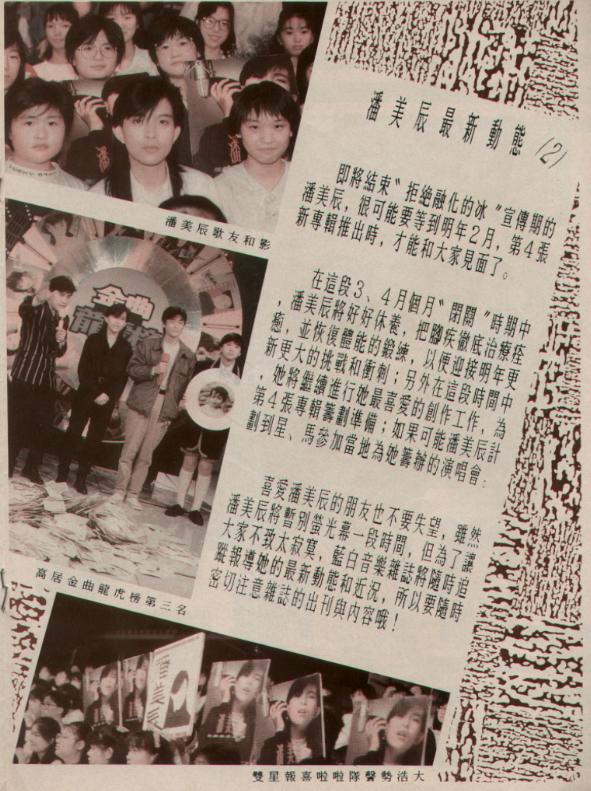 潘美辰最新動態
(2)
即將結束“拒絕融化的冰”宣傳期的
潘美辰，很可能要等到明年2月，第4張
新專輯推出時，才能和大家見面了。
在這段3、4月個月“閉關”時期中
，潘美辰將好好休養，把腳疾徹底治療痊
癒，並恢復體能的鍛練，以便迎接明年更
新更大的挑戰和衝刺；另外在這段時間中
，她將繼續進行她最喜愛的創作工作，為
第4張專輯籌劃準備；如果可能潘美辰計
劃到星、馬參加當地為她籌辦的演唱會。
喜愛潘美辰的朋友也不要失望，雖然
潘美辰將暫別螢光幕一段時間，但為了讓
大家不致太寂寞，藍白音樂雜誌將隨時追
蹤報導她的最新動態和近況，所以要隨時
密切注意雜誌的出刊與內容哦！
潘美辰歌友和影
金曲
高居金曲龍虎榜第三名
潘美辰
雙星報喜啦啦隊聲勢浩大